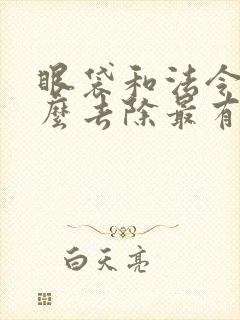 眼袋和法令
麼去除最有
白天亮